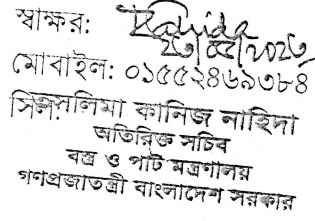 স্বাক্ষর:
মোবাইল: ০১৫৫২৪৬৯৩৮৪
সিল: সেলিমা কানিজ নাহিদা
অতিরিক্ত সচিব
বস্ত্র ও পাট মন্ত্রণালয়
গণপ্রজাতন্ত্রী বাংলাদেশ সরকার